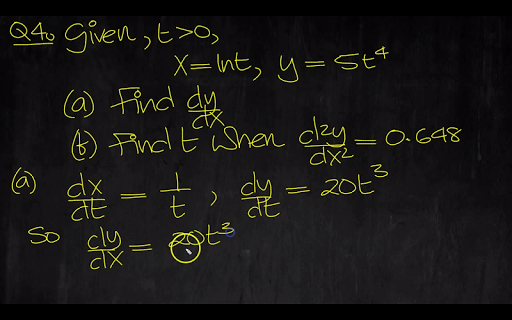 Q4. Given, t>0,
x=lnt, y=5t⁴
(a) Find dy/dx
(b) Find t when d²y/dx² = 0.648
(a) dx/dt = 1/t, dy/dt = 20t³
So dy/dx = 20t³